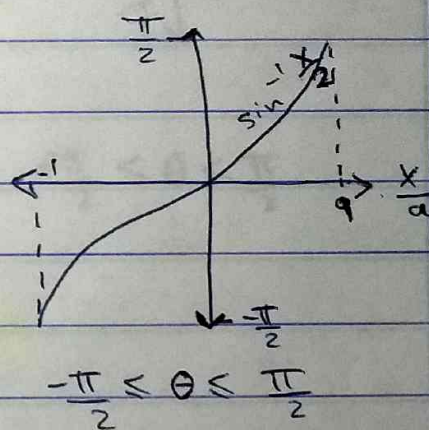 π/2
sin⁻¹ x/2
-1
a
x/a
-π/2
-π/2 ≤ θ ≤ π/2